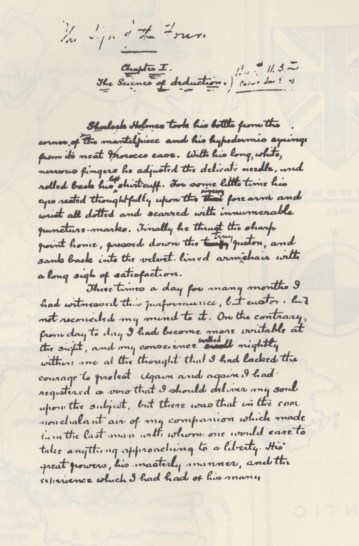 The Sign of the Four.
Chapter I.
The Science of deduction.
Sherlock Holmes took his bottle from the
corner of the mantelpiece and his hypodermic syringe
from its neat morocco case. With his long, white,
nervous fingers he adjusted the delicate needle, and
rolled back his left shirtcuff. For some little time his
eyes rested thoughtfully upon the sinewy forearm and
wrist all dotted and scarred with innumerable
puncture-marks. Finally he thrust the sharp
point home, pressed down the tiny piston, and
sank back into the velvet lined armchair with
a long sigh of satisfaction.
Three times a day for many months I
had witnessed this performance, but custom had
not reconciled my mind to it. On the contrary,
from day to day I had become more irritable at
the sight, and my conscience swelled nightly
within me at the thought that I had lacked the
courage to protest. Again and again I had
registered a vow that I should deliver my soul
upon the subject, but there was that in the cool
nonchalant air of my companion which made
him the last man with whom one would care to
take anything approaching to a liberty. His
great powers, his masterly manner, and the
experience which I had had of his many
NTIC